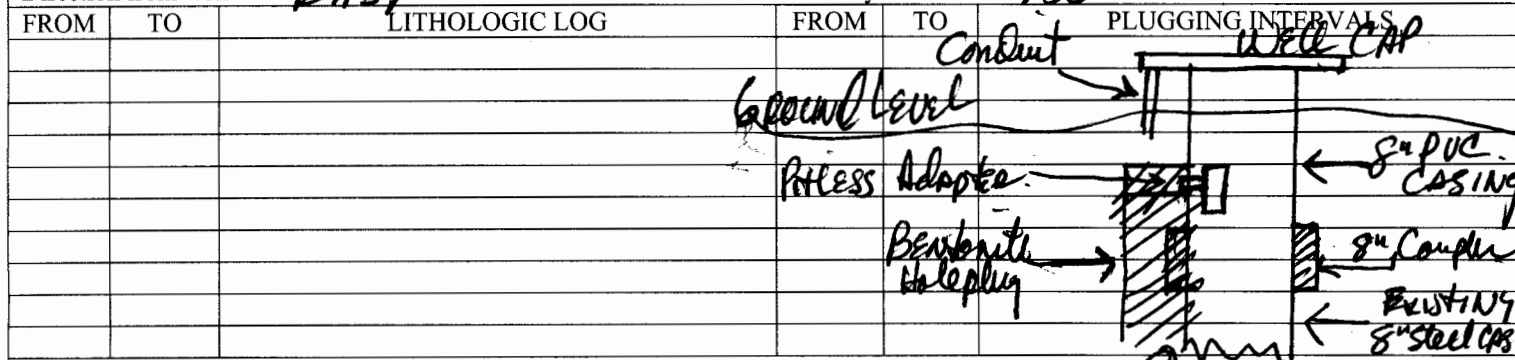 FROM TO LITHOLOGIC LOG FROM TO PLUGGING INTERVALS
Conduit WELL CAP
GROUND LEVEL
8" PVC
CASING
PITLESS Adapter
BENTONITE
Hole plug
8" Coupler
EXISTING
8" Steel CAS